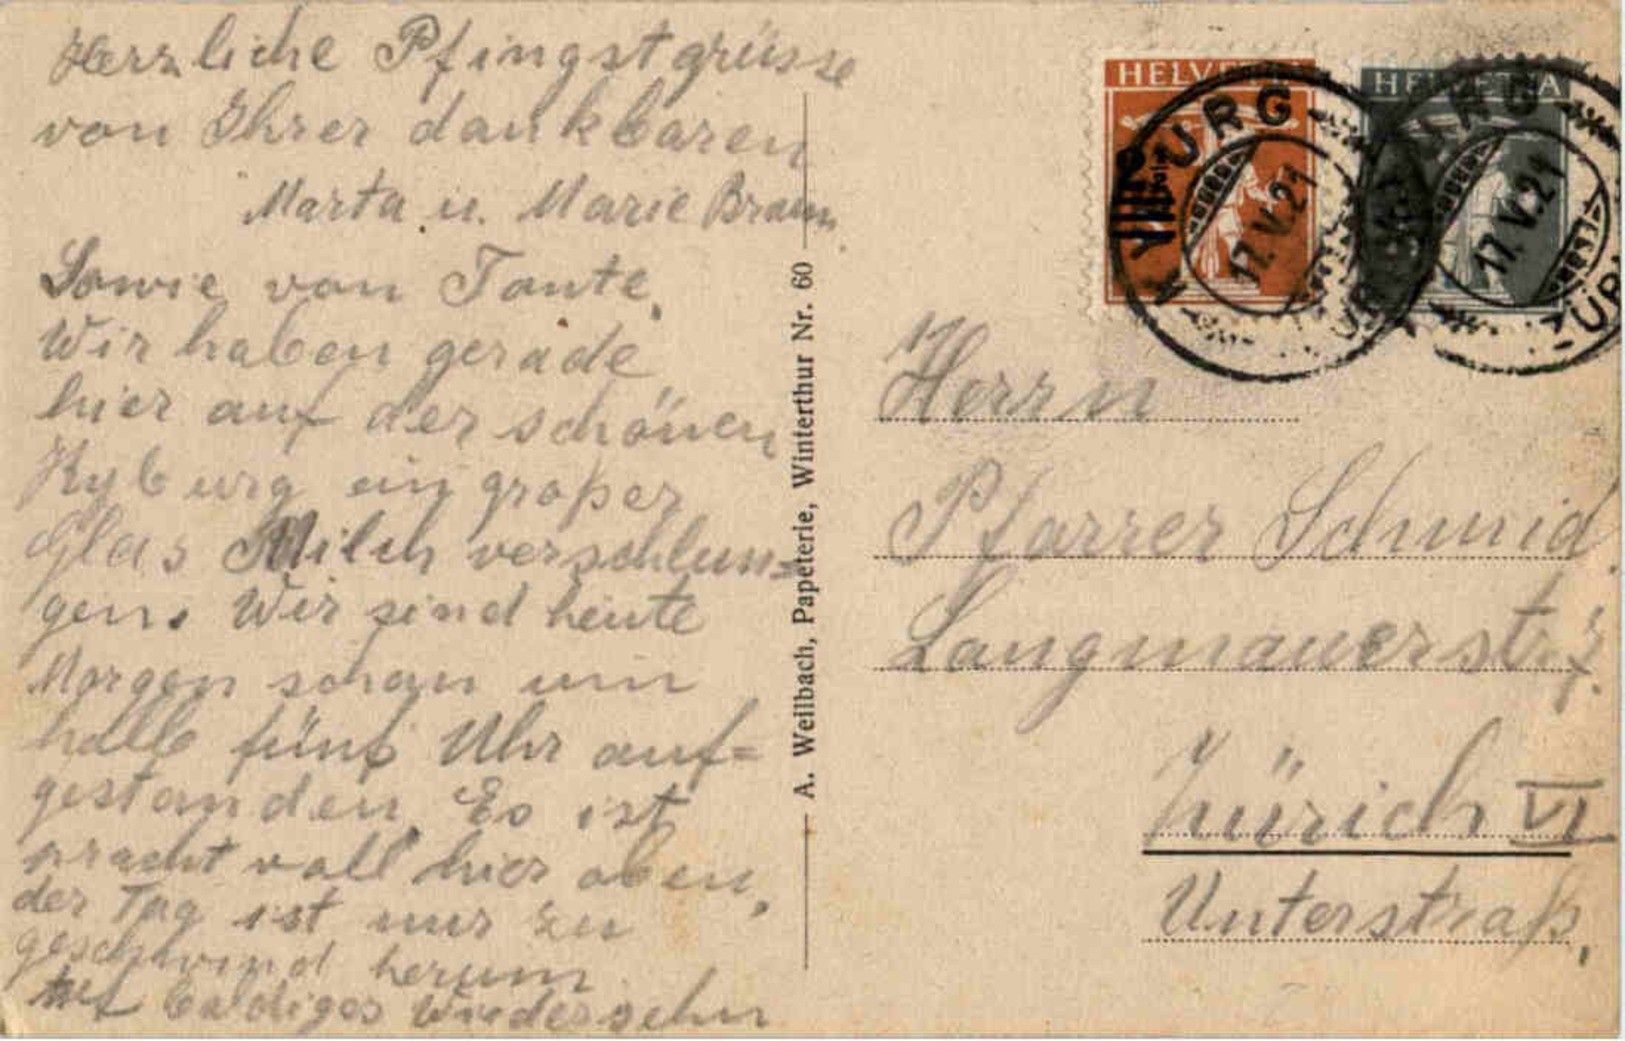 Herzliche Pfingstgrüsse
von Ihrer dankbaren
Marta u. Marie Braun
Sowie von Tante.
Wir haben gerade
hier auf der schönen
Kyburg ein großer
Glas Milch verschlun=
gen. Wir sind heute
Morgen schon um
halb fünf Uhr auf=
gestanden. Es ist
pracht voll hier oben,
der Tag ist nur zu
geschwind herum
Auf baldiges Wiedersehn
A. Weilbach, Papeterie, Winterthur Nr. 60
HELVETIA
HELVETIA
KYBURG
17.V.21
17.V.21
Herrn
Pfarrer Schmid
Langmauerstr.
Zürich VI
Unterstraß,